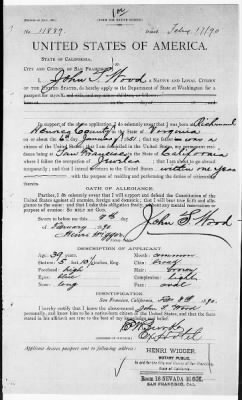 No. 11889.
Feby 17/90
UNITED STATES OF AMERICA.
STATE OF CALIFORNIA,
CITY AND COUNTY OF SAN FRANCISCO
I, John S. Wood, A NATIVE AND LOYAL CITIZEN
OF THE UNITED STATES, do hereby apply to the Department of State at Washington for a
passport for myself
In support of the above application, I do solemnly swear that I was born at Richmond
Henrico County in Virginia
on or about the 6th day January 1851; that my father was a
citizen of the United States; that I am domiciled in the United States, my permanent resi-
dence being at San Francisco, in California
where I follow the occupation of Jeweler; that I am about to go abroad
temporarily; and that I intend to return to the United States within one year
with the purpose of residing and performing the duties of citizenship
therein.
OATH OF ALLEGIANCE.
Further, I do solemnly swear that I will support and defend the Constitution of the
United States against all enemies, foreign and domestic; that I will bear true faith and alle-
giance to the same; and that I take this obligation freely, without any mental reservation or
purpose of evasion: SO HELP ME GOD.
Sworn to before me this 8th
February 1890
John S Wood
Henri Wigger
DESCRIPTION OF APPLICANT.
Age: 39 years
Mouth: common
Stature: 5 feet
Forehead: high
Hair: brown
Eyes: blue
Complexion: light
Nose: long
Face: oval
IDENTIFICATION.
San Francisco, California, Feb 8th 1890.
I hereby certify that I know the above-named John S. Wood
personally, and know him to be a native-born citizen of the United States, and that the facts
stated in his affidavit are true to the best of my knowledge and belief.
Applicant desires passport sent to following address:
HENRI WIGGER,
NOTARY PUBLIC,
SAN FRANCISCO, CAL.